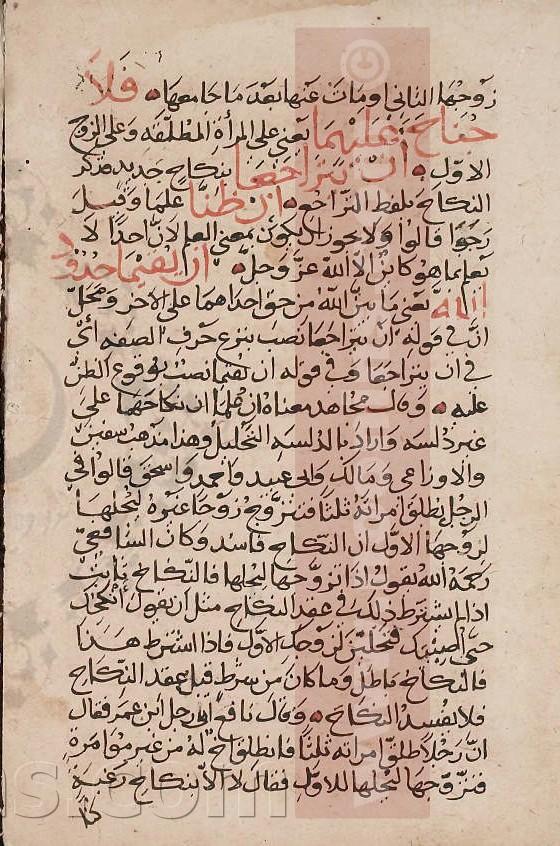 زوجها الثاني او مات عنها بعد ما جامعها فلا
جناح عليهما يعني على المرأة المطلقة وعلى الزوج
الاول ان يتراجعا بنكاح جديد فذكر
النكاح بلفظ التراجع ان ظنا علما وقيل
رجوا قالوا ولا يجوز ان يكون بمعنى العلم لان احدا لا
يعلم ما هو كائن الا الله عز وجل ان يقيما حدود
الله يعني ما بين الله من حق احدهما على الآخر ومحل
ان في قوله ان يتراجعا نصب بنزع حرف الصفة اي
في ان يتراجعا وفي قوله ان يقيما نصب بوقوع الظن
عليه وقال مجاهد معناه ان علما ان نكاحهما على
غير دلسة واراد بالدلسة التحليل وهذا مذهب سفين
والاوزاعي ومالك وابي عبيد واحمد واسحق قالوا في
الرجل يطلق امراته ثلثا فتتزوج زوجا غيره ليحلها
لزوجها الاول ان النكاح فاسد وكان الشافعي
رحمه الله يقول اذا تزوجها ليحلها فالنكاح ثابت
اذا لم يشترط ذلك في عقد النكاح مثل ان يقول انكحك
حتى اصيبك فتحلين لزوجك الاول فاذا اشترط هذا
فالنكاح باطل وما كان من شرط قبل عقد النكاح
فلا يفسد النكاح وقال نافع اتى رجل ابن عمر فقال
ان رجلا طلق امراته ثلثا فانطلق اخ له من غير موامرة
فتزوجها ليحلها للاول فقال لا الا نكاح رغبة